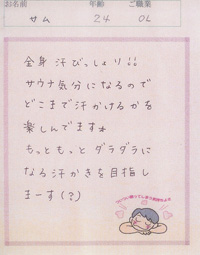 お名前 年齢 ご職業
サム 24 OL
全身汗びっしょり！！
サウナ気分になるので
どこまで汗かけるかを
楽しんでます☆
もっともっとダラダラに
なる汗かきを目指し
まーす(？)